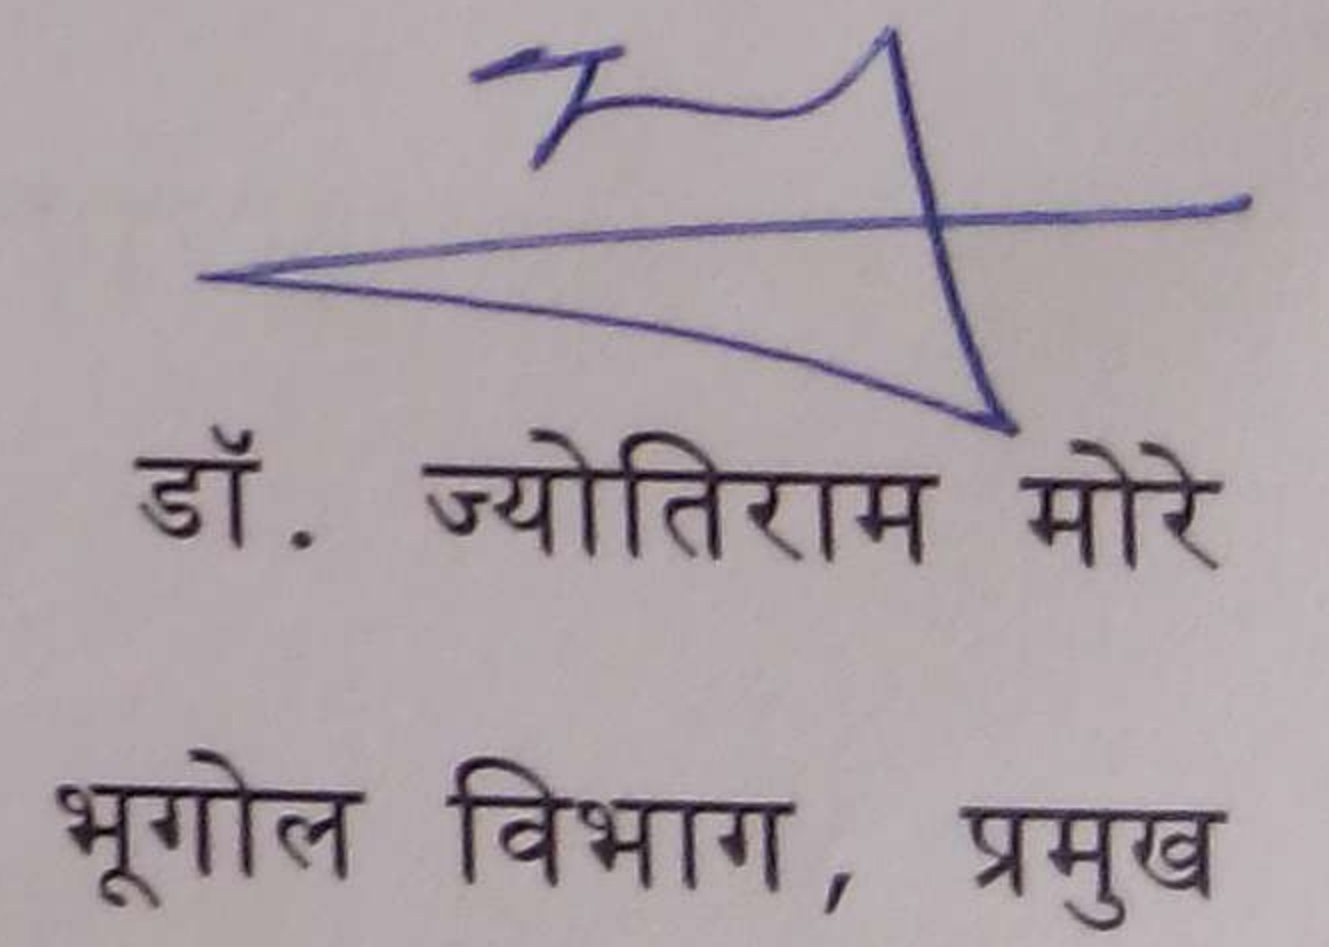 डॉ. ज्योतिराम मोरे
भूगोल विभाग, प्रमुख